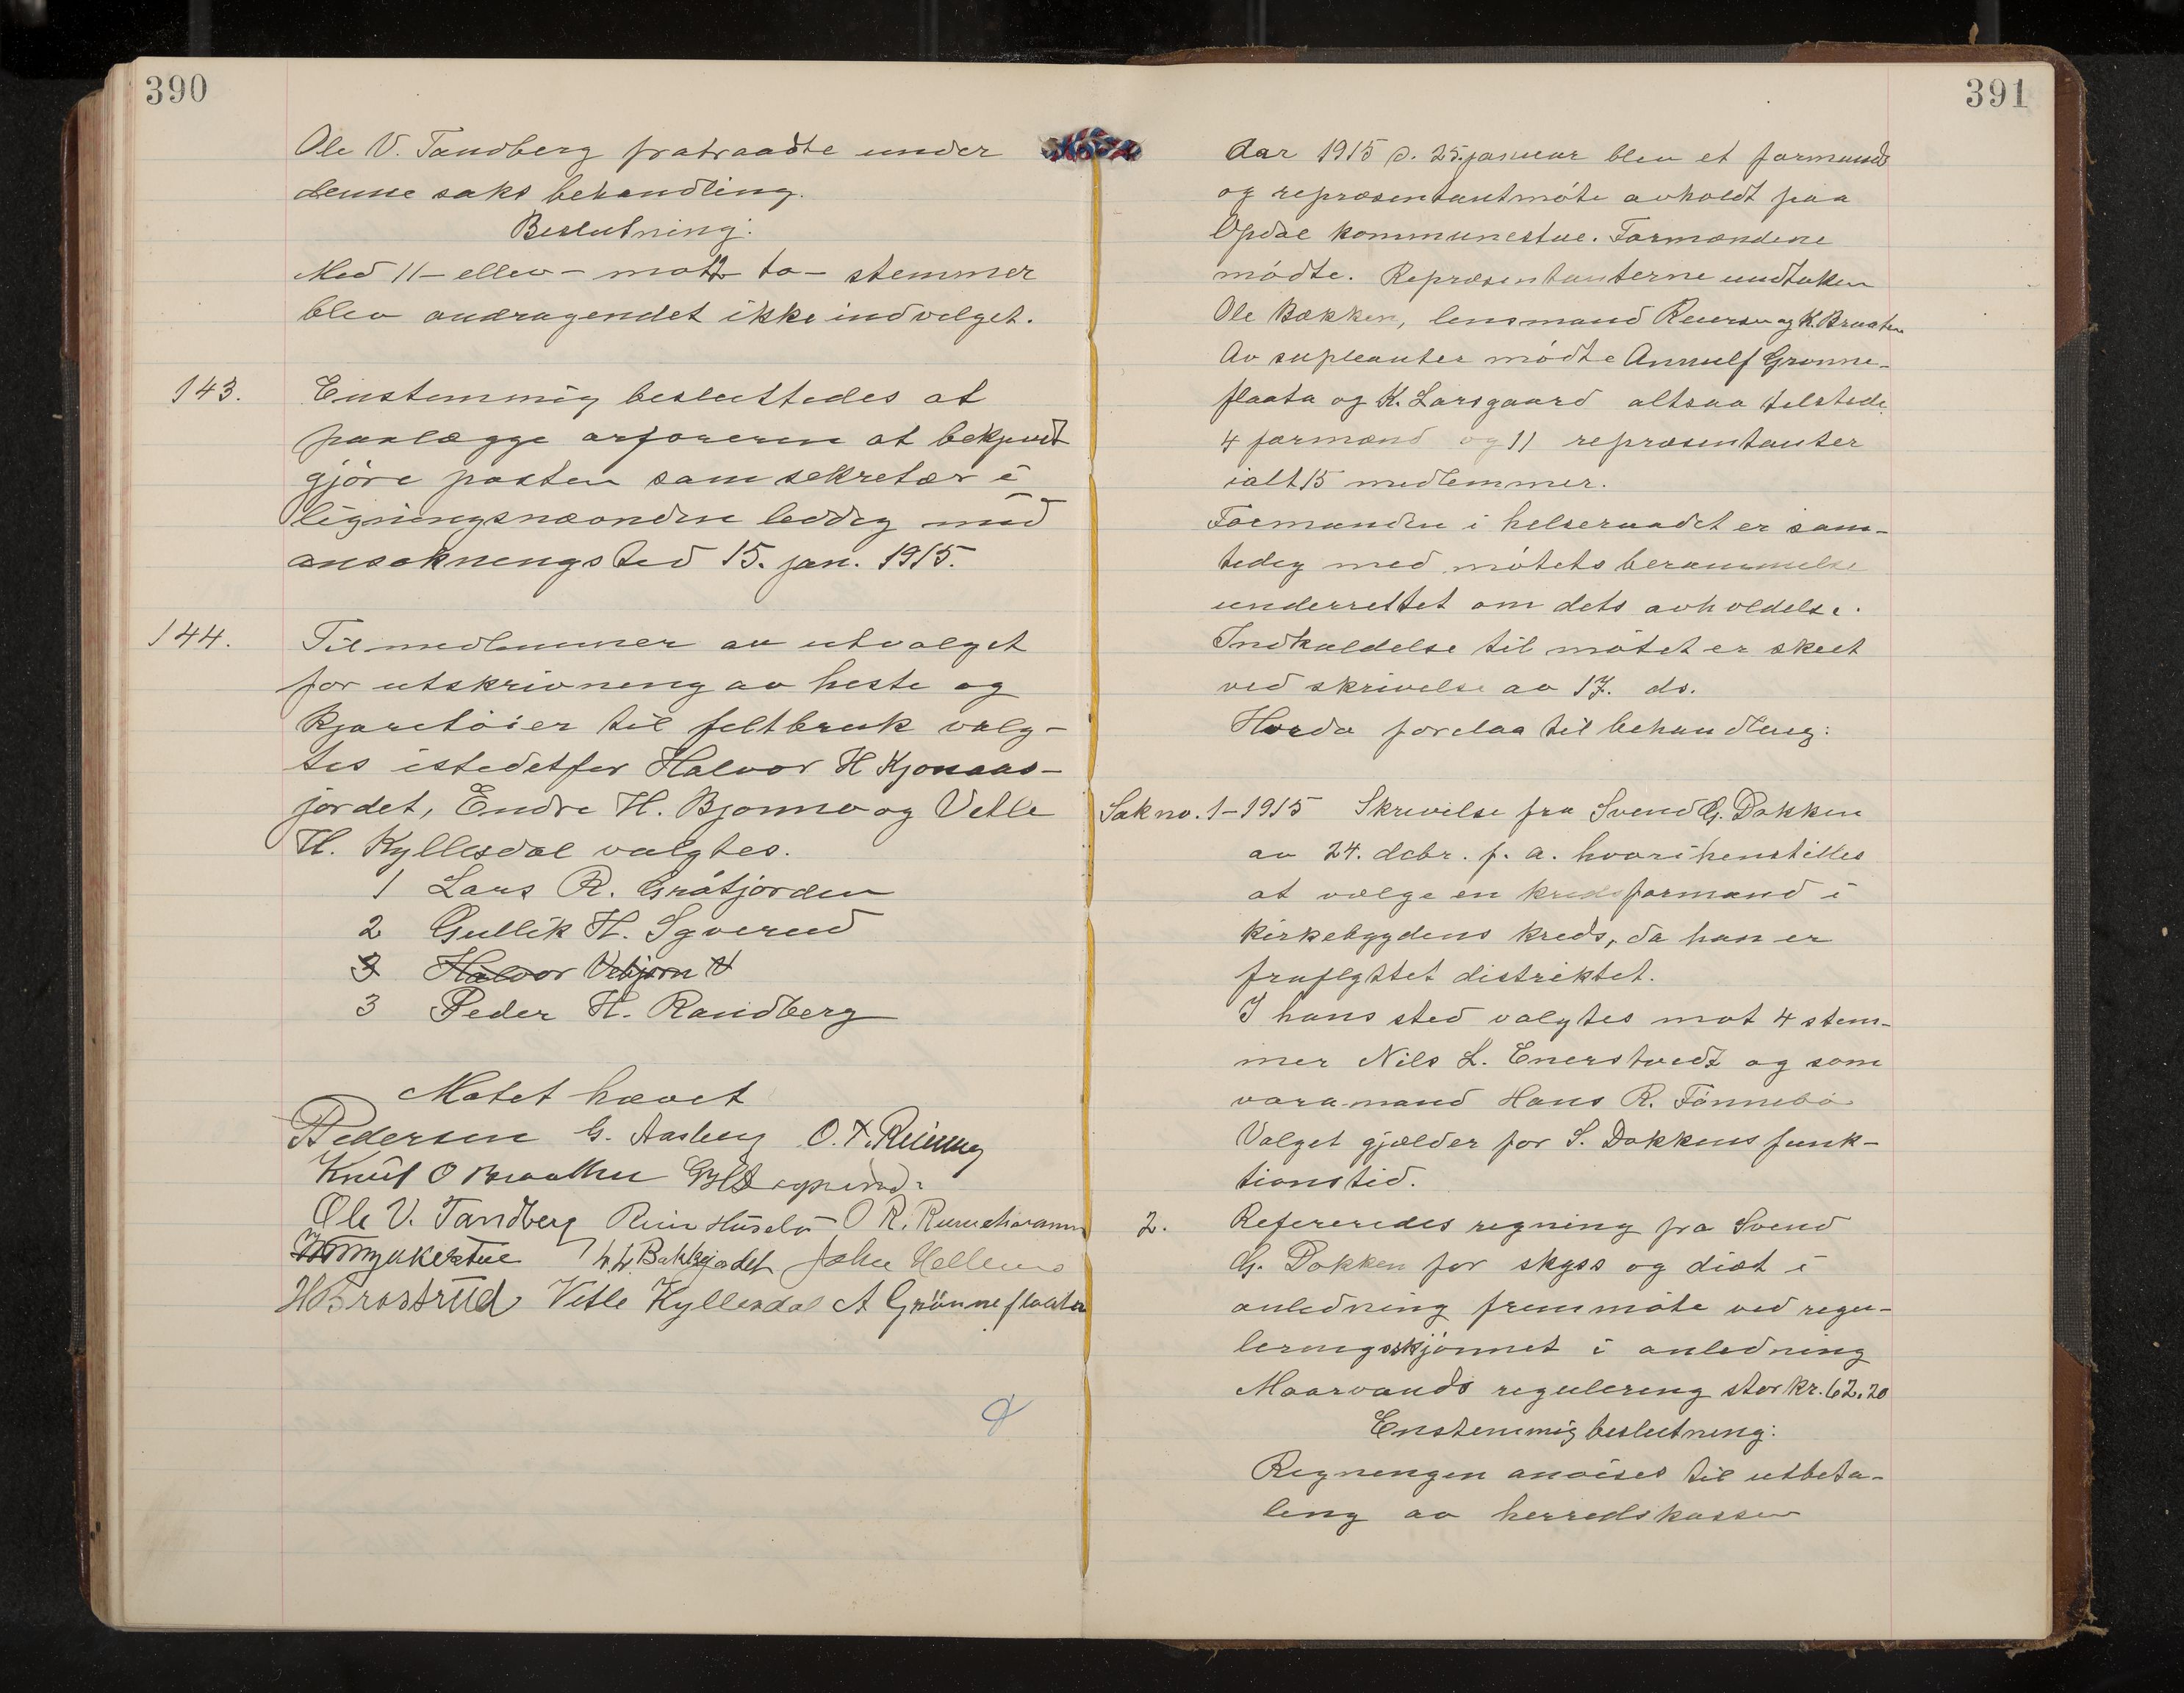 390
Ole V. Tandberg fratraadte under
denne saks behandling.
Beslutning:
Med 11 - ellev - mot 2 to - stemmer
blev andragendet ikke indvelget.
143. Enstemmig besluttedes at
paalægge orføreren at bekjendt
gjöre posten som sekretær i
ligningsnævnden leddig med
ansøkningsted 15. jan. 1915.
144. Til medlemmer av utvalget
for utskrivning av heste og
kjøretöier til feltbruk valg-
tes istedetfor Halvor H Kjonaas-
jordet, Endre H. Bjonno og Vetle
H. Kyllesdal valgtes.
1 Lars R. Gråtjorden
2 Gullik H. Sgverud
3 Halvor Vebjørn
3 Peder H. Randberg
Møtet hævet
Pedersen G. Aasberg O. T.
Knut O Braathen
Ole V. Tandberg O R.
H. H. Bakkejordet John Hellems
H Brostrud Vetle Kyllesdal A Grönneflaata
391
Aar 1915 d. 25. januar blev et formands
og repræsentantmöte avholdt paa
Opdal kommunestue. Formændene
mödte. Repræsentanterne undtaken
Ole Bækken, lensmand Reiersen og K. Braaten
Av supleanter mödte Annulf Grønne-
flaata og K. Larsgaard altsaa tilstede
4 formænd og 11 repræsentanter
ialt 15 medlemmer.
Formanden i helseraadet er sam-
tidig med mötets berammelse
underrettet om dets avholdelse.
Indkaldelse til mötet er skeet
ved skrivelse av 17. ds.
Horda forelaa til behandling:
Sak no. 1-1915 Skrivelse fra Svend G. Dokken
av 24. dcbr. f. a. hvori henstilles
at vælge en kredsformand i
kirkebygdens kreds, da han er
fraflyttet distriktet.
I hans sted valgtes mot 4 stem-
mer Nils L. Enerstvedt og som
varamand Hans R. Fönnebö
Valget gjælder for S. Dokkens funk-
tionstid.
2. Refereredes regning fra Svend
G. Dokken for skyss og diæt i
anledning fremmöte ved regu-
leringsskjönnet i anledning
Maarvands regulering stor kr. 62.20
Enstemmig beslutning:
Regningen anvises til utbeta-
ling av herredskassen